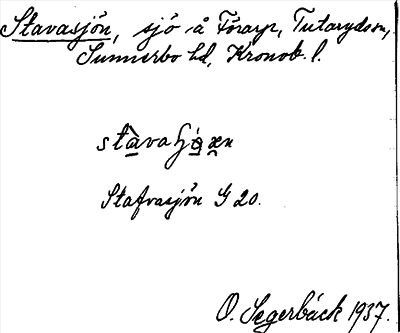 Stavasjön, sjö å Förayn, Tutaryds sn,
Sunnerbo hd, Kronob. l.
Stafvasjön G 20.
O. Segerbäck 1937.